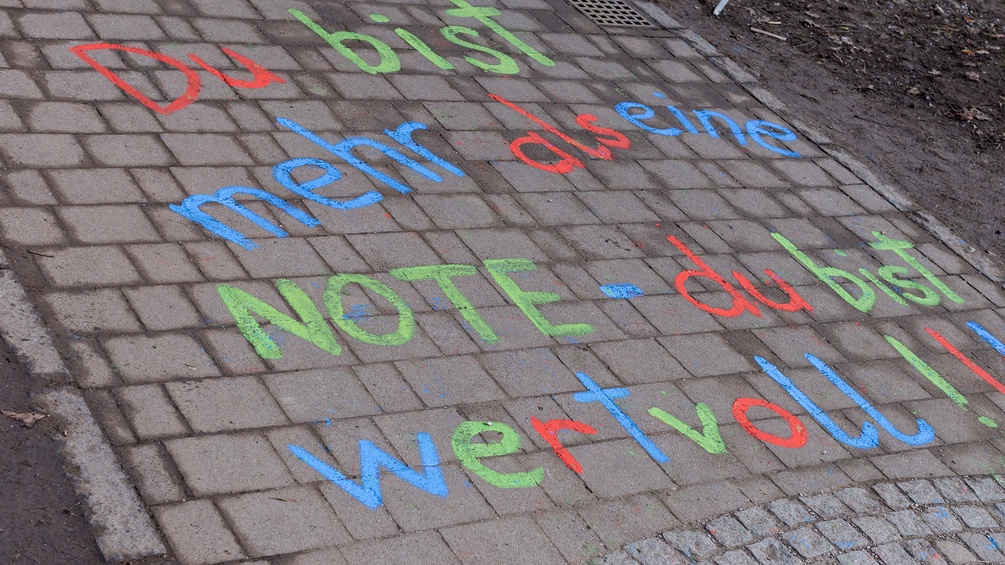 Du bist
mehr als eine
NOTE - du bist
wertvoll!!!